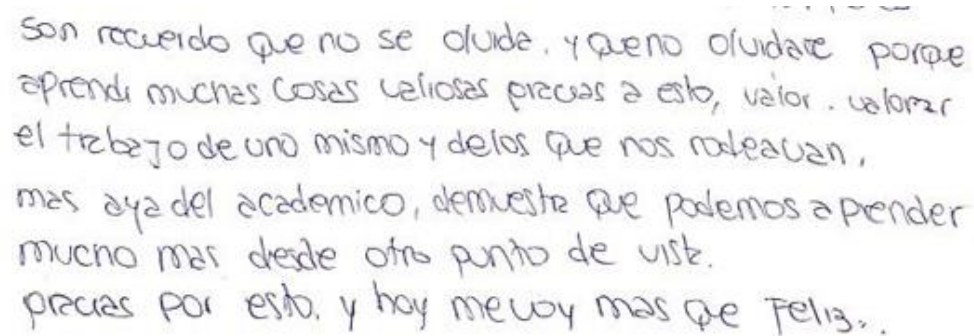 son recuerdo que no se olvida. y que no olvidare porque
aprendi muchas cosas valiosas gracias a esto, valor. valorar
el trabajo de uno mismo y delos que nos rodeavan,
mas aya del academico, demuestra que podemos aprender
mucho mas desde otro punto de vista.
gracias por esto. y hoy me voy mas que Feliz..